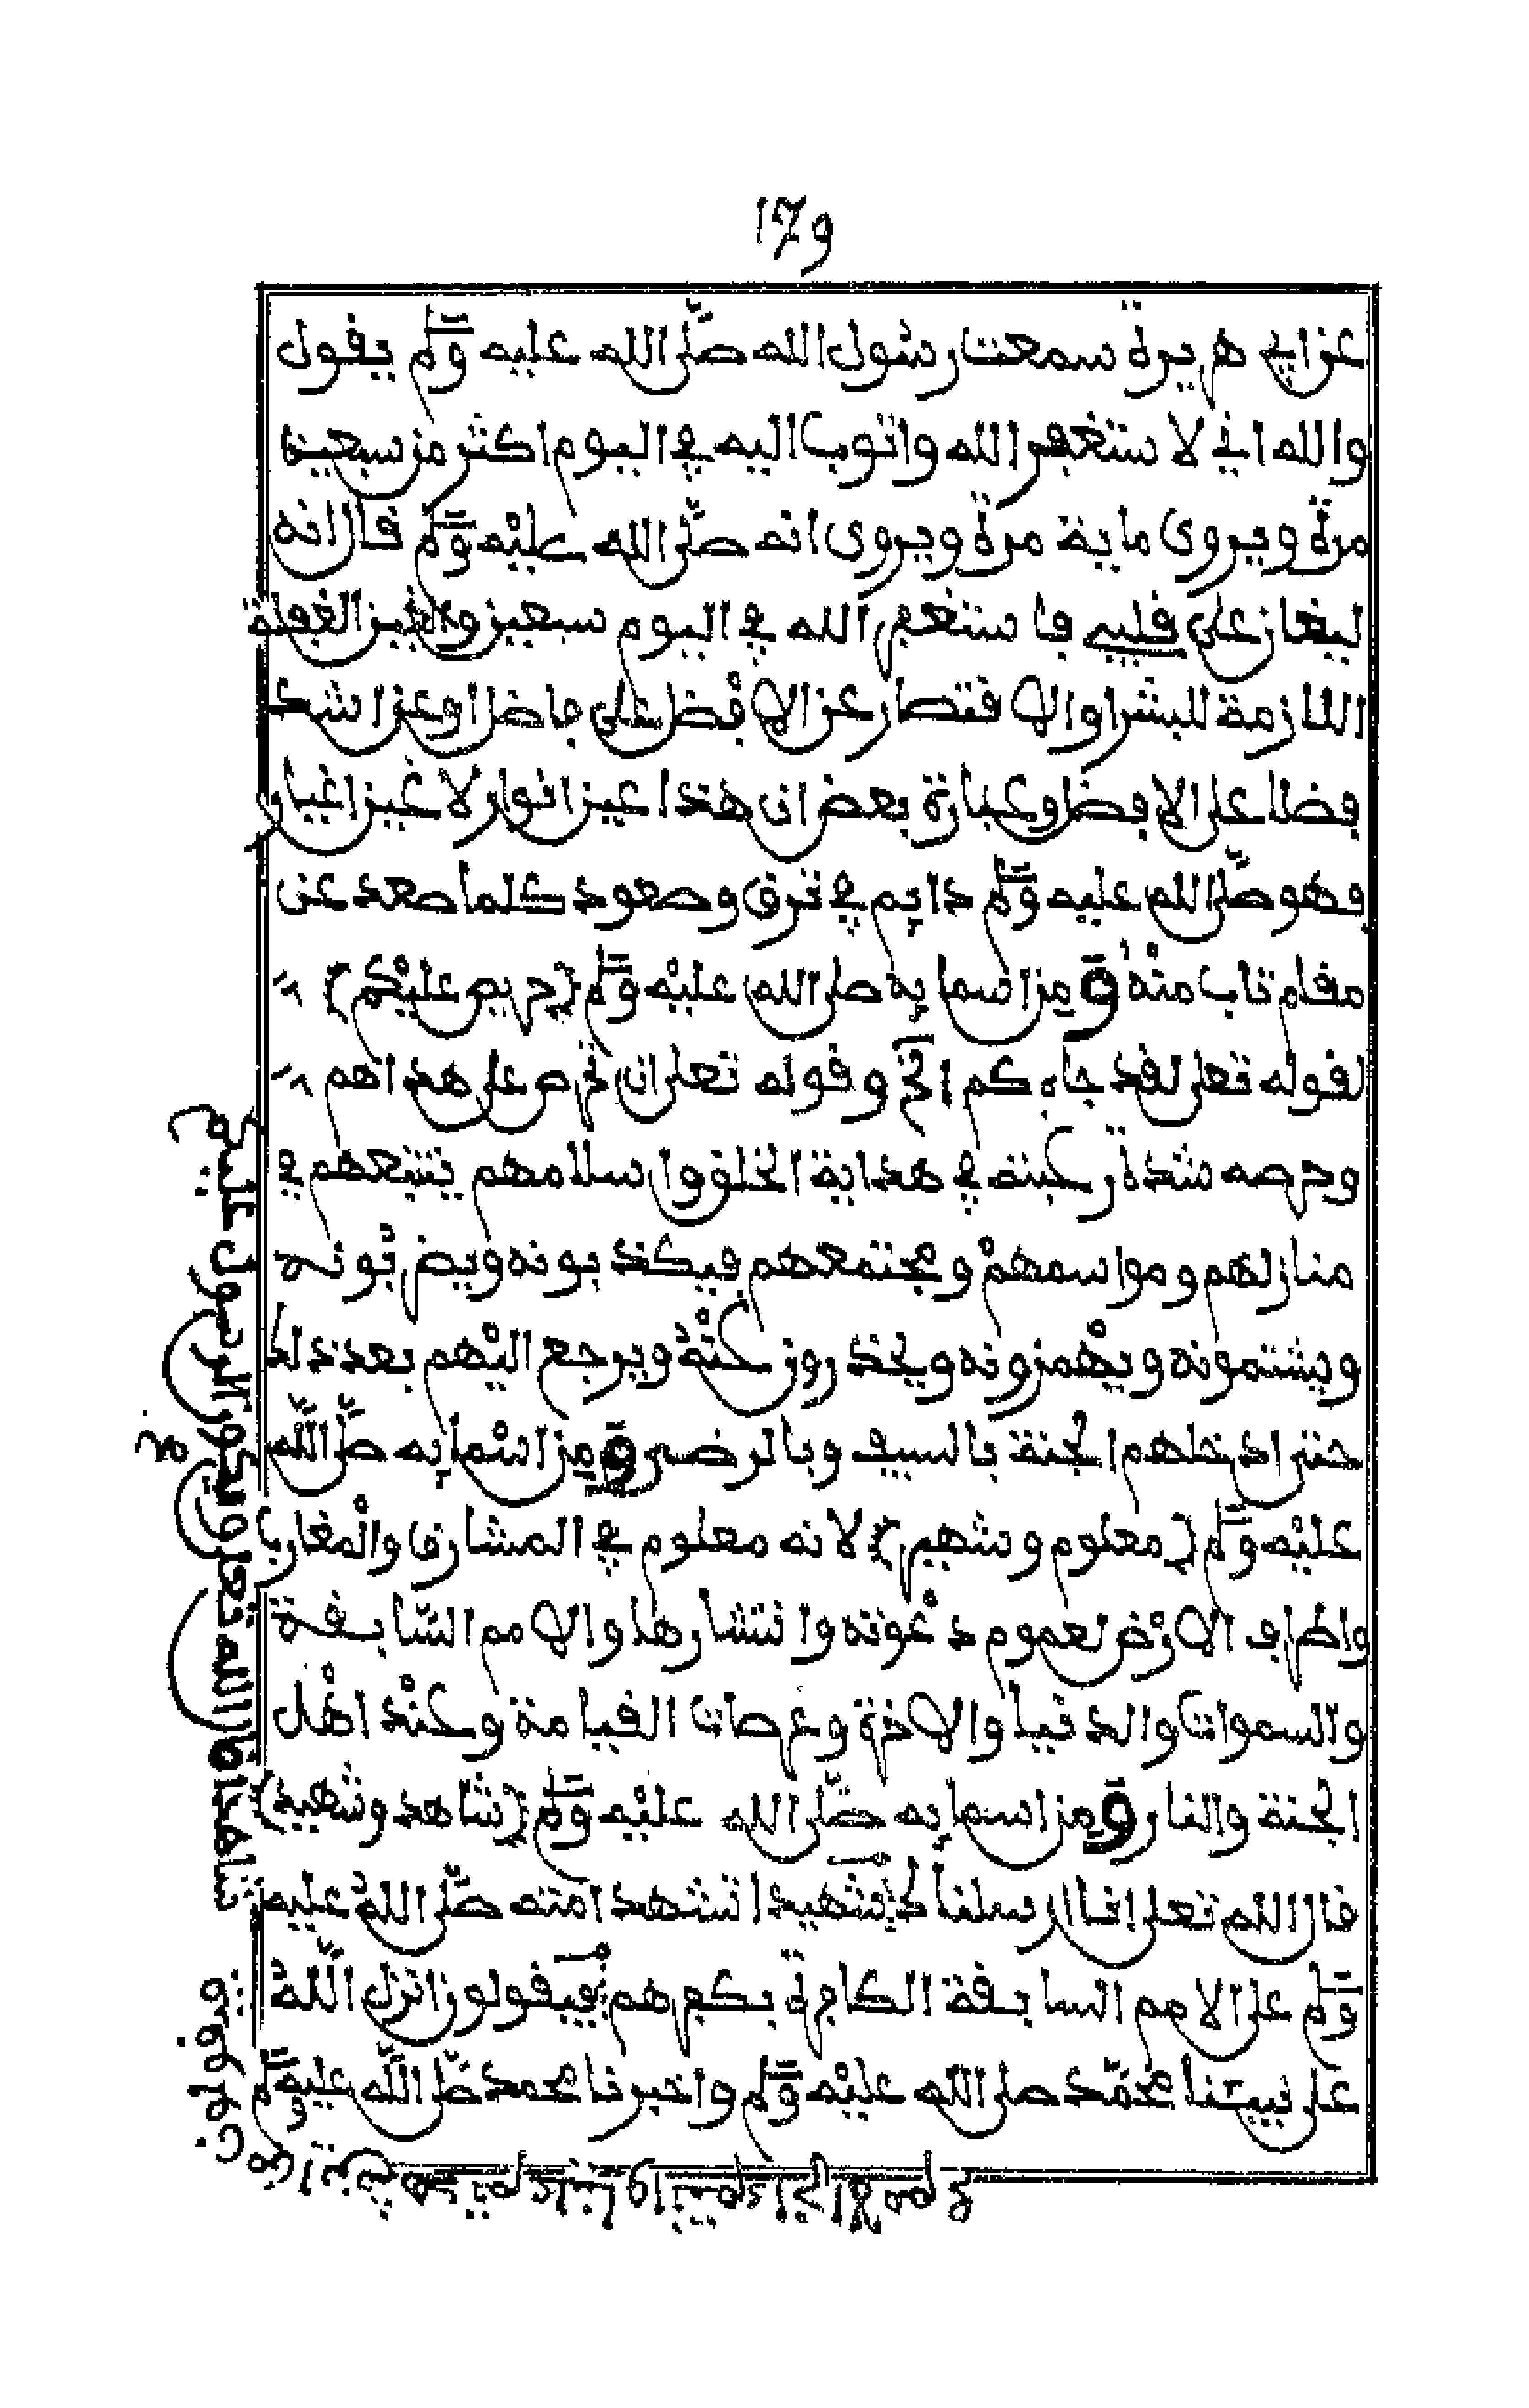 179
عن ابي هريرة سمعت رسول الله صلى الله عليه وسلم يقول
والله اني لا ستغفر الله واتوب اليه في اليوم اكثر من سبعين
مرة ويروى ماية مرة ويروى انه صلى الله عليه وسلم قال انه
ليغان على قلبي فا ستغفر الله في اليوم سبعين والغين الغفلة
اللازمة للبشر او الاقتصار عن الافضل على فاضل او عن اشد
فضلا على الافضل وعبارة بعض ان هذا غين انوار لا غين اغيار
فهو صلى الله عليه وسلم دايم في ترق وصعود كلما صعد عن
مقام تاب منه ومن اسمايه صلى الله عليه وسلم {حريص عليكم}
لقوله تعلى لقد جاءكم الخ وقوله تعلى ان تحرص على هداهم
وحرصه شدة رغبته في هداية الخلق واسلامهم يتتبعهم في
منازلهم ومواسمهم ومجتمعهم فيكذبونه ويضربونه
ويشتمونه ويهمزونه ويحذرون عنه ويرجع اليهم بعد ذلك
حتى ادخلهم الجنة بالسيف وبالرضى ومن اسمايه صلى الله
عليه وسلم {معلوم وشهير} لانه معلوم في المشارق والمغارب
واطراف الارض لعموم دعوته وانتشارها والامم السابقة
والسموات والدنيا والاخرة وعرصات القيامة وعند اهل
الجنة والنار ومن اسمايه صلى الله عليه وسلم {شاهد وشهيد}
قال الله تعلى انا ارسلناك شهيدا تشهد امته صلى الله عليه
وسلم على الامم السابقة الكافرة بكفرهم فيقولون انزل الله
على نبيـنا محمد صلى الله عليه وسلم واخبرنا محمد صلى الله عليه وسلم
شاهدا قال الله تعلى ويكون الرسول عليكم